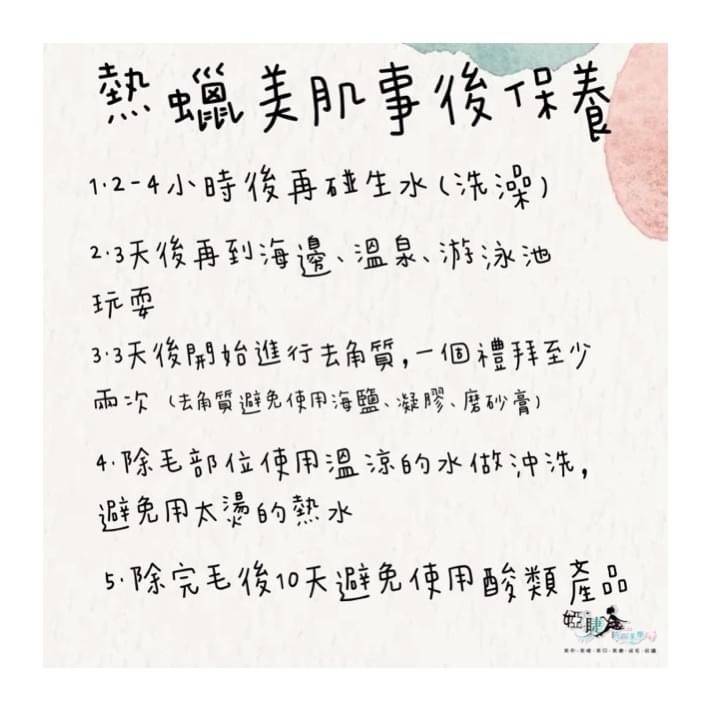 熱蠟美肌事後保養
1.2-4小時後再碰生水(洗澡)
2.3天後再到海邊、溫泉、游泳池
玩耍
3.3天後開始進行去角質,一個禮拜至少
兩次 (去角質避免使用海鹽、凝膠、磨砂膏)
4.除毛部位使用溫涼的水做沖洗,
避免用太燙的熱水
5.除完毛後10天避免使用酸類產品